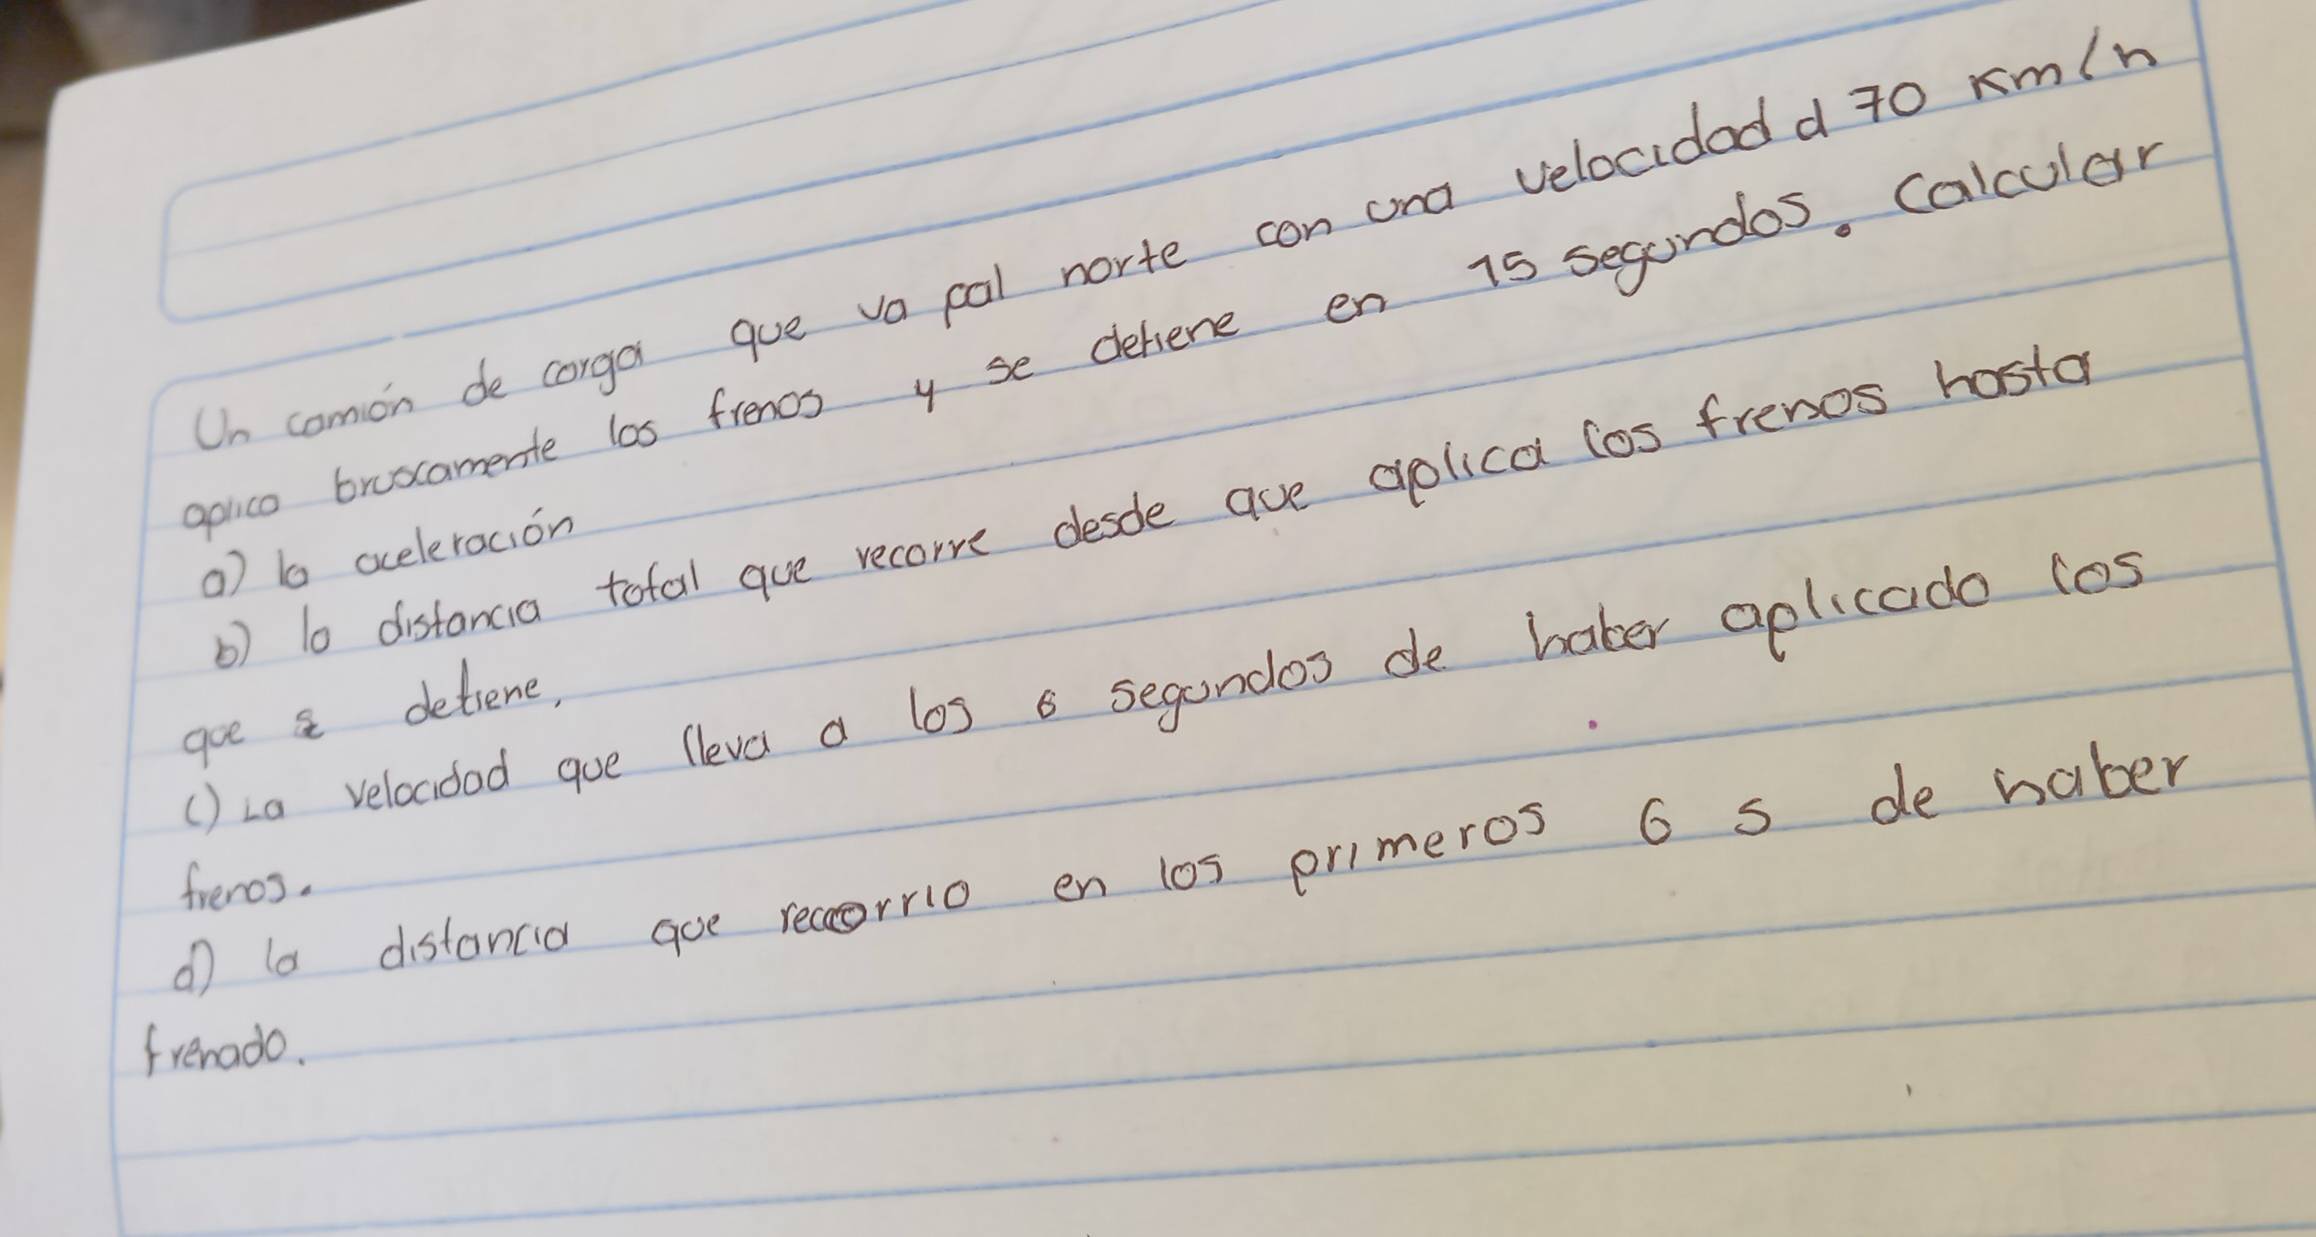 Un camión de carga que va pal norte con una velocidad d 70 Km/h
aplico bruscamente los frenos y se detiene en 15 segundos. Calcular
a) la aceleración
b) la distancia total que recorre desde que aplica los frenos hasta
que se detiene,
c) La velocidad que lleva a los 6 segundos de haber aplicado los
frenos.
d) la distancia que recorrio en los primeros 6 s de haber
frenado.